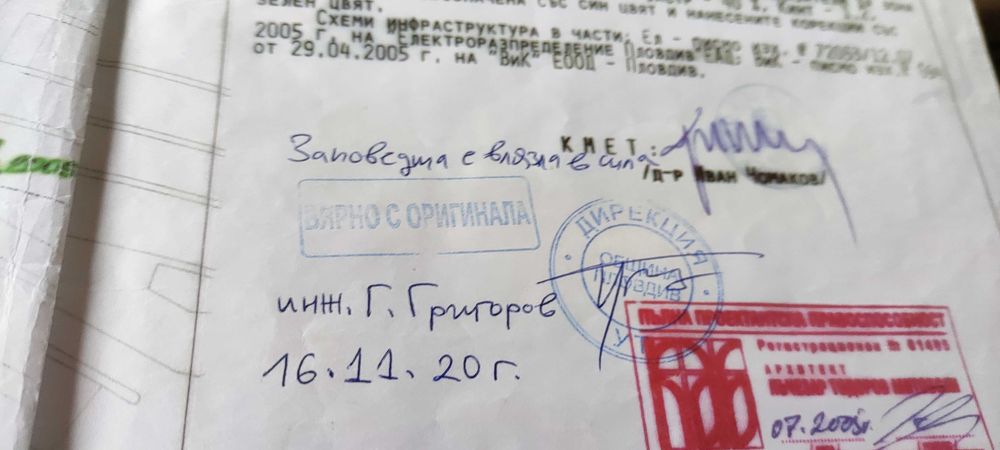 ЗЕЛЕН ЦВЯТ.
СЪС СИН ЦВЯТ И НАНЕСЕНИТЕ КОРЕКЦИИ СЪС
СХЕМИ ИНФРАСТРУКТУРА В ЧАСТИ: ЕЛ - ПИСМО ИЗХ. #
2005 Г. НА "ЕЛЕКТРОРАЗПРЕДЕЛЕНИЕ ПЛОВДИВ" ЕАД; ВИК - ПИСМО ИЗХ.
ОТ 29.04.2005 Г. НА "ВИК" ЕООД - ПЛОВДИВ.
КМЕТ:
Заповедта е влязла в сила
/Д-Р ИВАН ЧОМАКОВ/
ВЯРНО С ОРИГИНАЛА
ДИРЕКЦИЯ
ОБЩИНА
ПЛОВДИВ
инж. Г. Григоров
16.11.20г.
ПЪЛНА ПРОЕКТАНТСКА ПРАВОСПОСОБНОСТ
Регистрационен № 01495
АРХИТЕКТ
07.2005г.